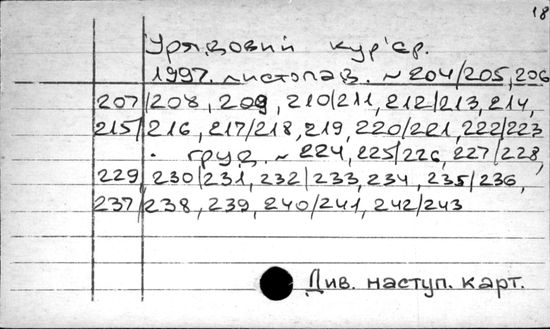 18
Урядовий кур'єр.
1997. листопад. ~ 204/205, 206
207/208, 209, 210/211, 212/213, 214,
215/216, 217/218, 219, 220/221, 222/223
· груд. ~ 224, 225/226, 227/228,
229, 230/231, 232/233, 234, 235/236,
237/238, 239, 240/241, 242/243
Див. наступ. карт.